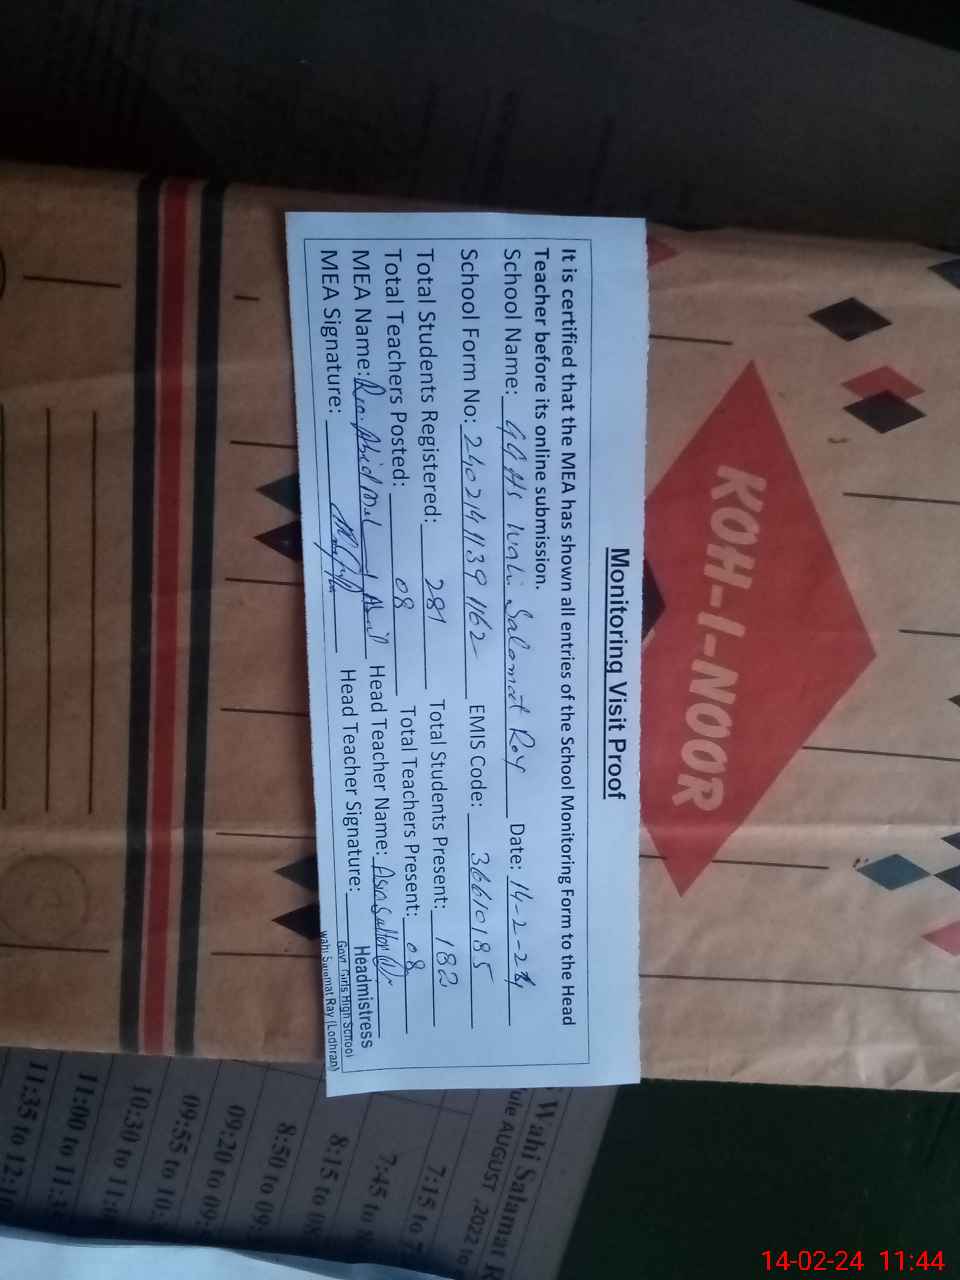 Monitoring Visit Proof
It is certified that the MEA has shown all entries of the School Monitoring Form to the Head
Teacher before its online submission.
School Name: GGHS Wahi Salamat Ray Date: 14-2-24
School Form No: 24021411391162 EMIS Code: 36610185
Total Students Registered: 281 Total Students Present: 182
Total Teachers Posted: 08 Total Teachers Present: 08
MEA Name: Head Teacher Name:
MEA Signature: Head Teacher Signature:
Headmistress
Govt. Girls High School
Wahi Salamat Ray (Lodhran)
KOH-I-NOOR
Wahi Salamat R
ule AUGUST .2022 to
7:15 to 7
7:45 to 8
8:15 to 08
8:50 to 09:
09:20 to 09:
09:55 to 10:
10:30 to 11:0
11:00 to 11:3
11:35 to 12:10
14-02-24 11:44